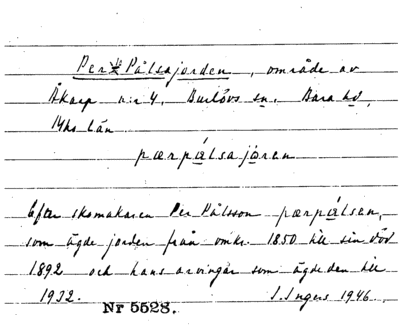 Per Pålsajorden, område av
Åkarp n:r 4, Burlövs sn. Bara hd,
Mhs län
pærpålsajoren
Efter skomakaren Per Pålsson pærpálsen,
som ägde jorden från omkr. 1850 till sin död
1892 och hans arvingar som ägde den till
1932. I. Ingers 1946.
Nr 5528.